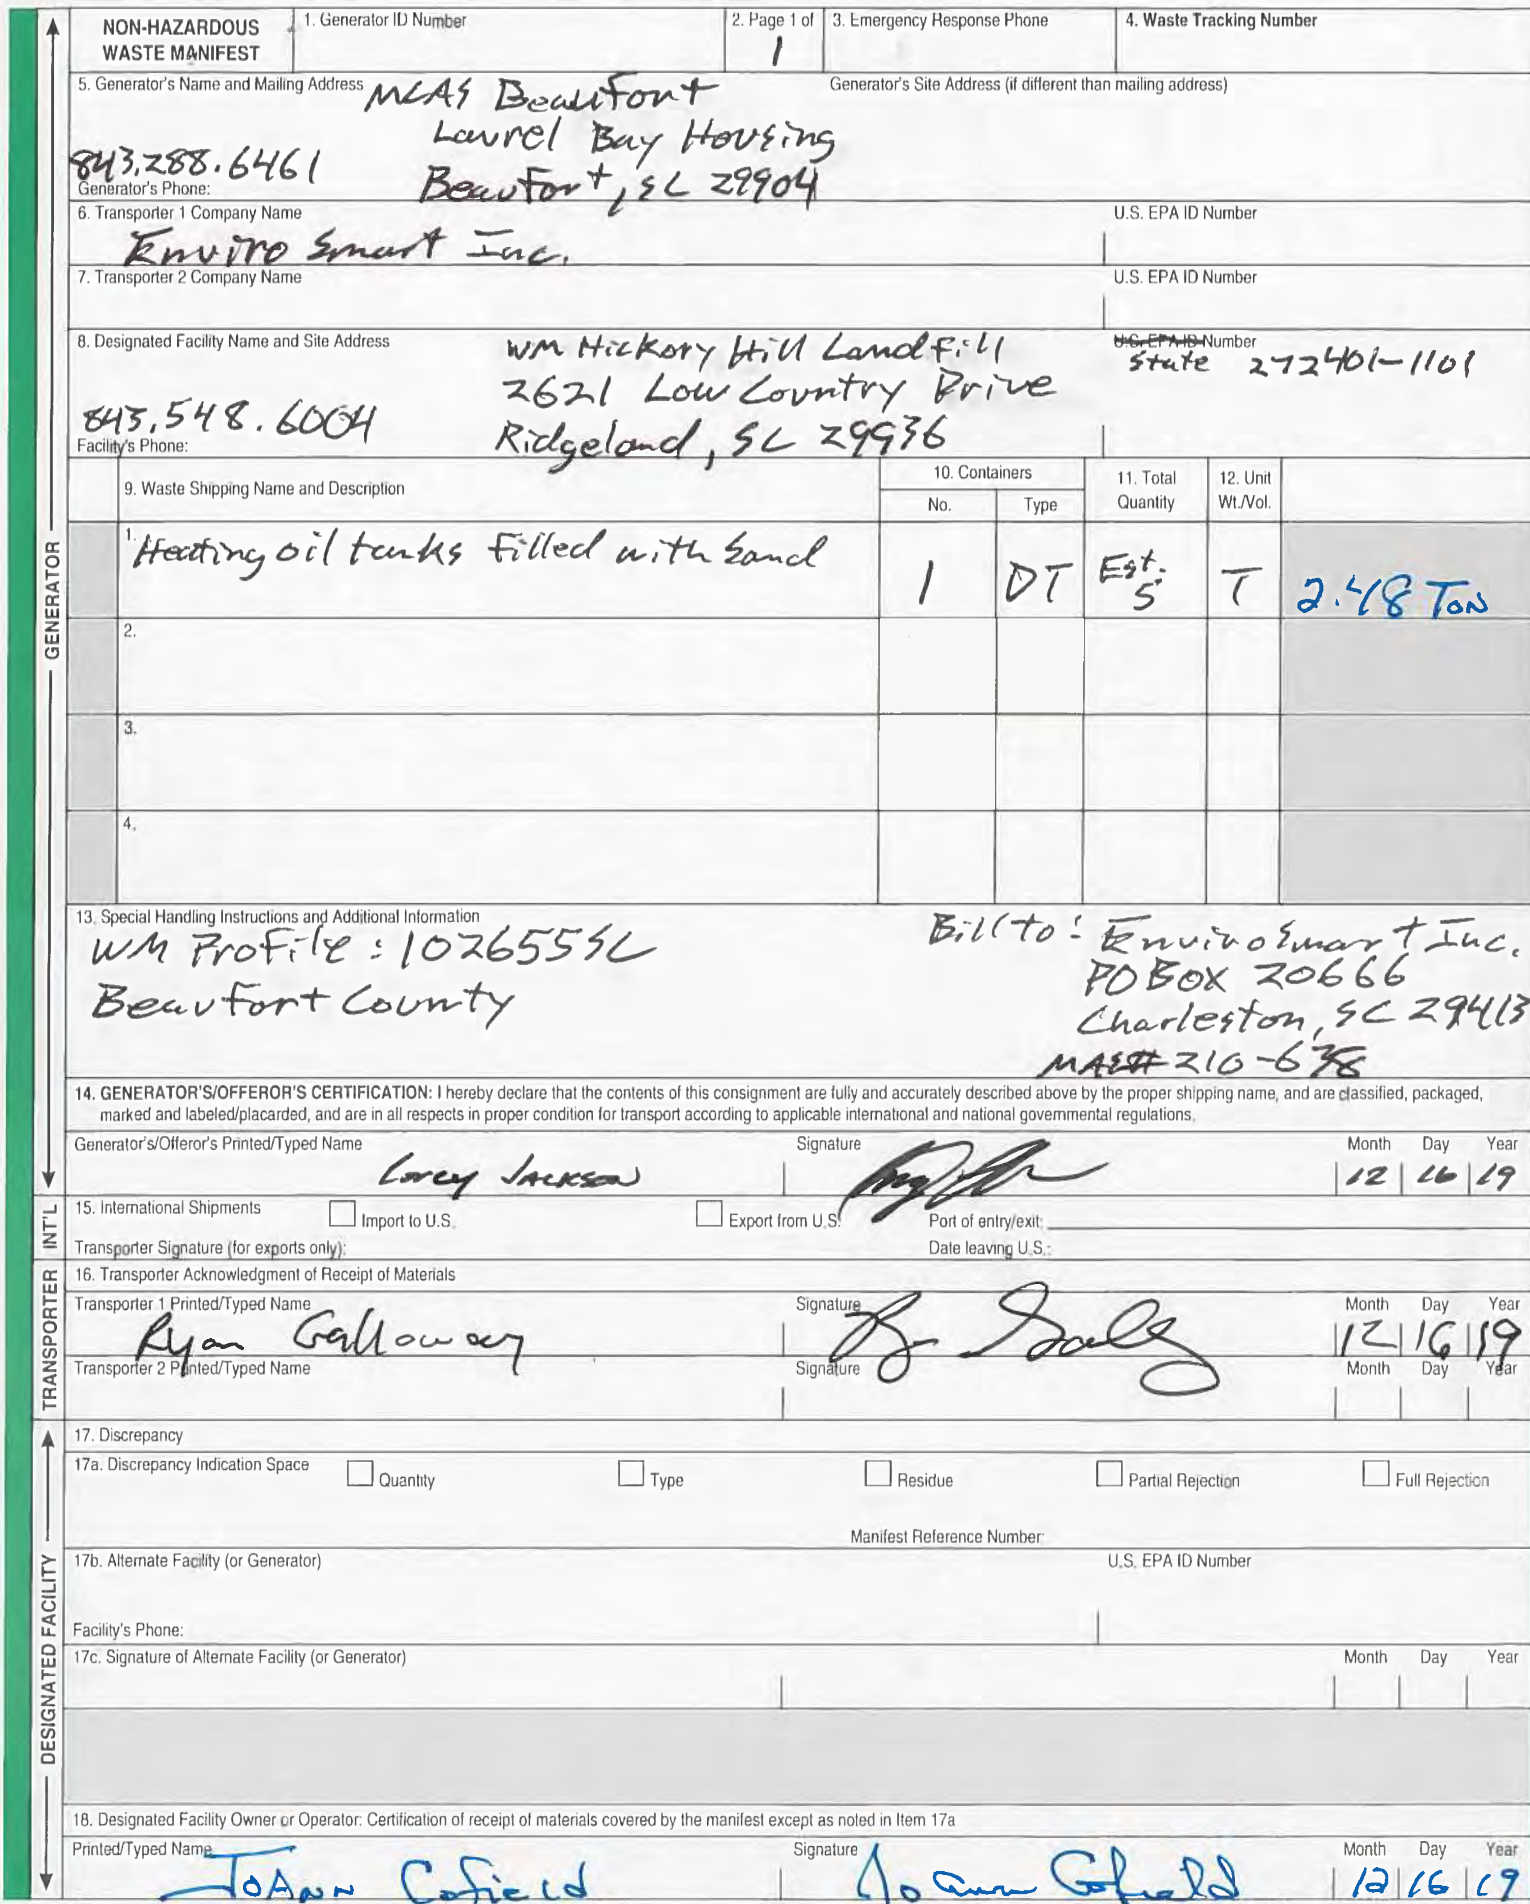 NON-HAZARDOUS WASTE MANIFEST
1. Generator ID Number
2. Page 1 of
1
3. Emergency Response Phone
4. Waste Tracking Number
5. Generator's Name and Mailing Address
MCAS Beaufort
Generator's Site Address (if different than mailing address)
Laurel Bay Housing
843.288.6461
Beaufort, SC 29904
Generator's Phone:
6. Transporter 1 Company Name
U.S. EPA ID Number
Enviro Smart Inc.
7. Transporter 2 Company Name
U.S. EPA ID Number
8. Designated Facility Name and Site Address
WM Hickory Hill Landfill
U.S. EPA ID Number
State 272401-1101
2621 Low Country Drive
843.548.6004
Ridgeland, SC 29936
Facility's Phone:
9. Waste Shipping Name and Description
10. Containers
No.
Type
11. Total Quantity
12. Unit Wt./Vol.
1. Heating oil tanks filled with sand
1
DT
Est. 5
T
2.48 Ton
2.
3.
4.
13. Special Handling Instructions and Additional Information
WM Profile: 102655SC
Beaufort County
Bill to: EnviroSmart Inc.
PO Box 20666
Charleston, SC 29413
14. GENERATOR'S/OFFEROR'S CERTIFICATION: I hereby declare that the contents of this consignment are fully and accurately described above by the proper shipping name, and are classified, packaged,
marked and labeled/placarded, and are in all respects in proper condition for transport according to applicable international and national governmental regulations.
Generator's/Offeror's Printed/Typed Name
Signature
Month Day Year
Corey Jackson
12 16 19
15. International Shipments
Import to U.S.
Export from U.S.
Port of entry/exit:
Transporter Signature (for exports only):
Date leaving U.S.:
16. Transporter Acknowledgment of Receipt of Materials
Transporter 1 Printed/Typed Name
Signature
Month Day Year
Ryan Galloway
12 16 19
Transporter 2 Printed/Typed Name
Signature
Month Day Year
17. Discrepancy
17a. Discrepancy Indication Space
Quantity
Type
Residue
Partial Rejection
Full Rejection
Manifest Reference Number:
17b. Alternate Facility (or Generator)
U.S. EPA ID Number
Facility's Phone:
17c. Signature of Alternate Facility (or Generator)
Month Day Year
18. Designated Facility Owner or Operator: Certification of receipt of materials covered by the manifest except as noted in Item 17a
Printed/Typed Name
Signature
Month Day Year
JoAnn Cofield
Jo Ann Cofield
12 16 19
GENERATOR
INT'L
TRANSPORTER
DESIGNATED FACILITY